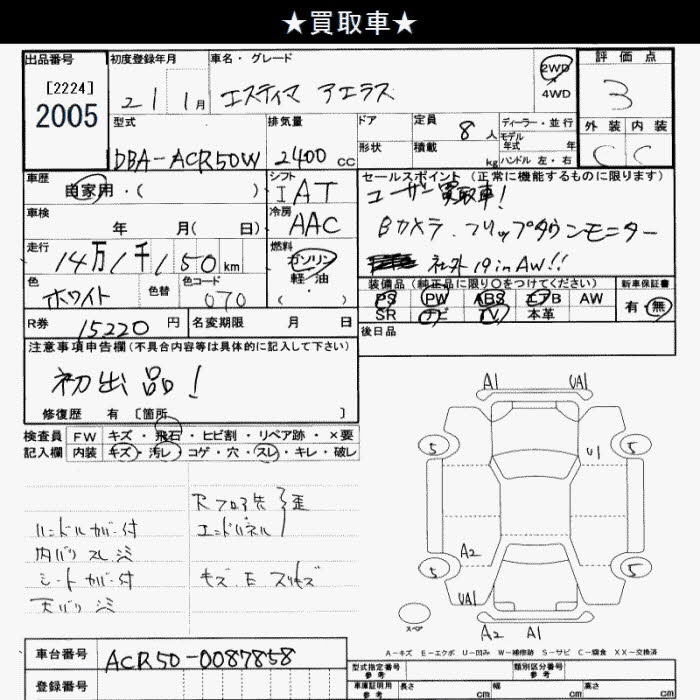 ★買取車★
出品番号 初度登録年月 車名・グレード 2WD 4WD 評価点
[2224] 2005 21 1月 エスティマ アエラス 3
外装 内装
C C
型式 排気量 ドア 定員 8人 ディーラー・並行
形状 積載 kg モデル年式 年
ハンドル 左・右
DBA-ACR50W 2400cc
車歴 自家用・( ) シフト IAT セールスポイント(正常に機能するものに限ります)
ユーザー買取車!
車検 年 月( 日) 冷房 AAC
Bカメラ.フリップダウンモニター
走行 14万1千150km 燃料 ガソリン 軽・油 ( )
社外19inAW!!
色 ホワイト 色替 色コード 070
装備品(純正品に限り○をつけてください) 新車保証書
PS PW ABS エアB AW 有・無
SR ナビ TV 本革
R券 15220円 名変期限 月 日
後日品
注意事項申告欄(不具合内容等は具体的に記入して下さい)
初出品!
修復歴 有 [箇所 ]
検査員 FW キズ・飛石・ヒビ割・リペア跡・×要
記入欄 内装 キズ・汚レ・コゲ・穴・スレ・キレ・破レ
ハンドルカバー付
内バリスレシミ
シートカバー付
天バリシミ
Rフロア先歪
エンドパネル
キズ.E スリキズ
A1 UA1
5 5
U1
A2
5 5
UA1
スペア
A2 A1
A-キズ E-エクボ U-凹み W-補修跡 S-サビ C-腐食 XX-交換済
車台番号 ACR50-0087858
登録番号
型式指定番号 参考 類別区分番号 参考
車庫証明用 参考 長さ cm 幅 cm 高さ cm